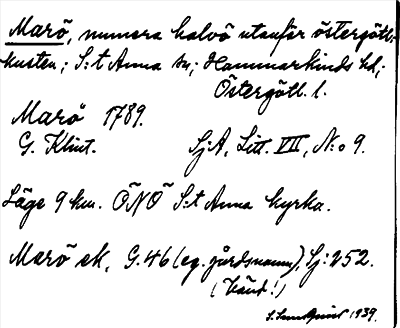 Marö, numera halvö utanför östergötl.-
kusten; S:t Anna sn; Hammarkinds hd;
Östergötl. l.
Marö 1789.
G. Klint. Sj.A, Litt. VIII, N:o 9.
Läge 9 km. ÖNÖ S:t Anna kyrka.
Marö ek, G. 46 (eg. gårdsnamn), Sj: 252.
(känt!)
1939.